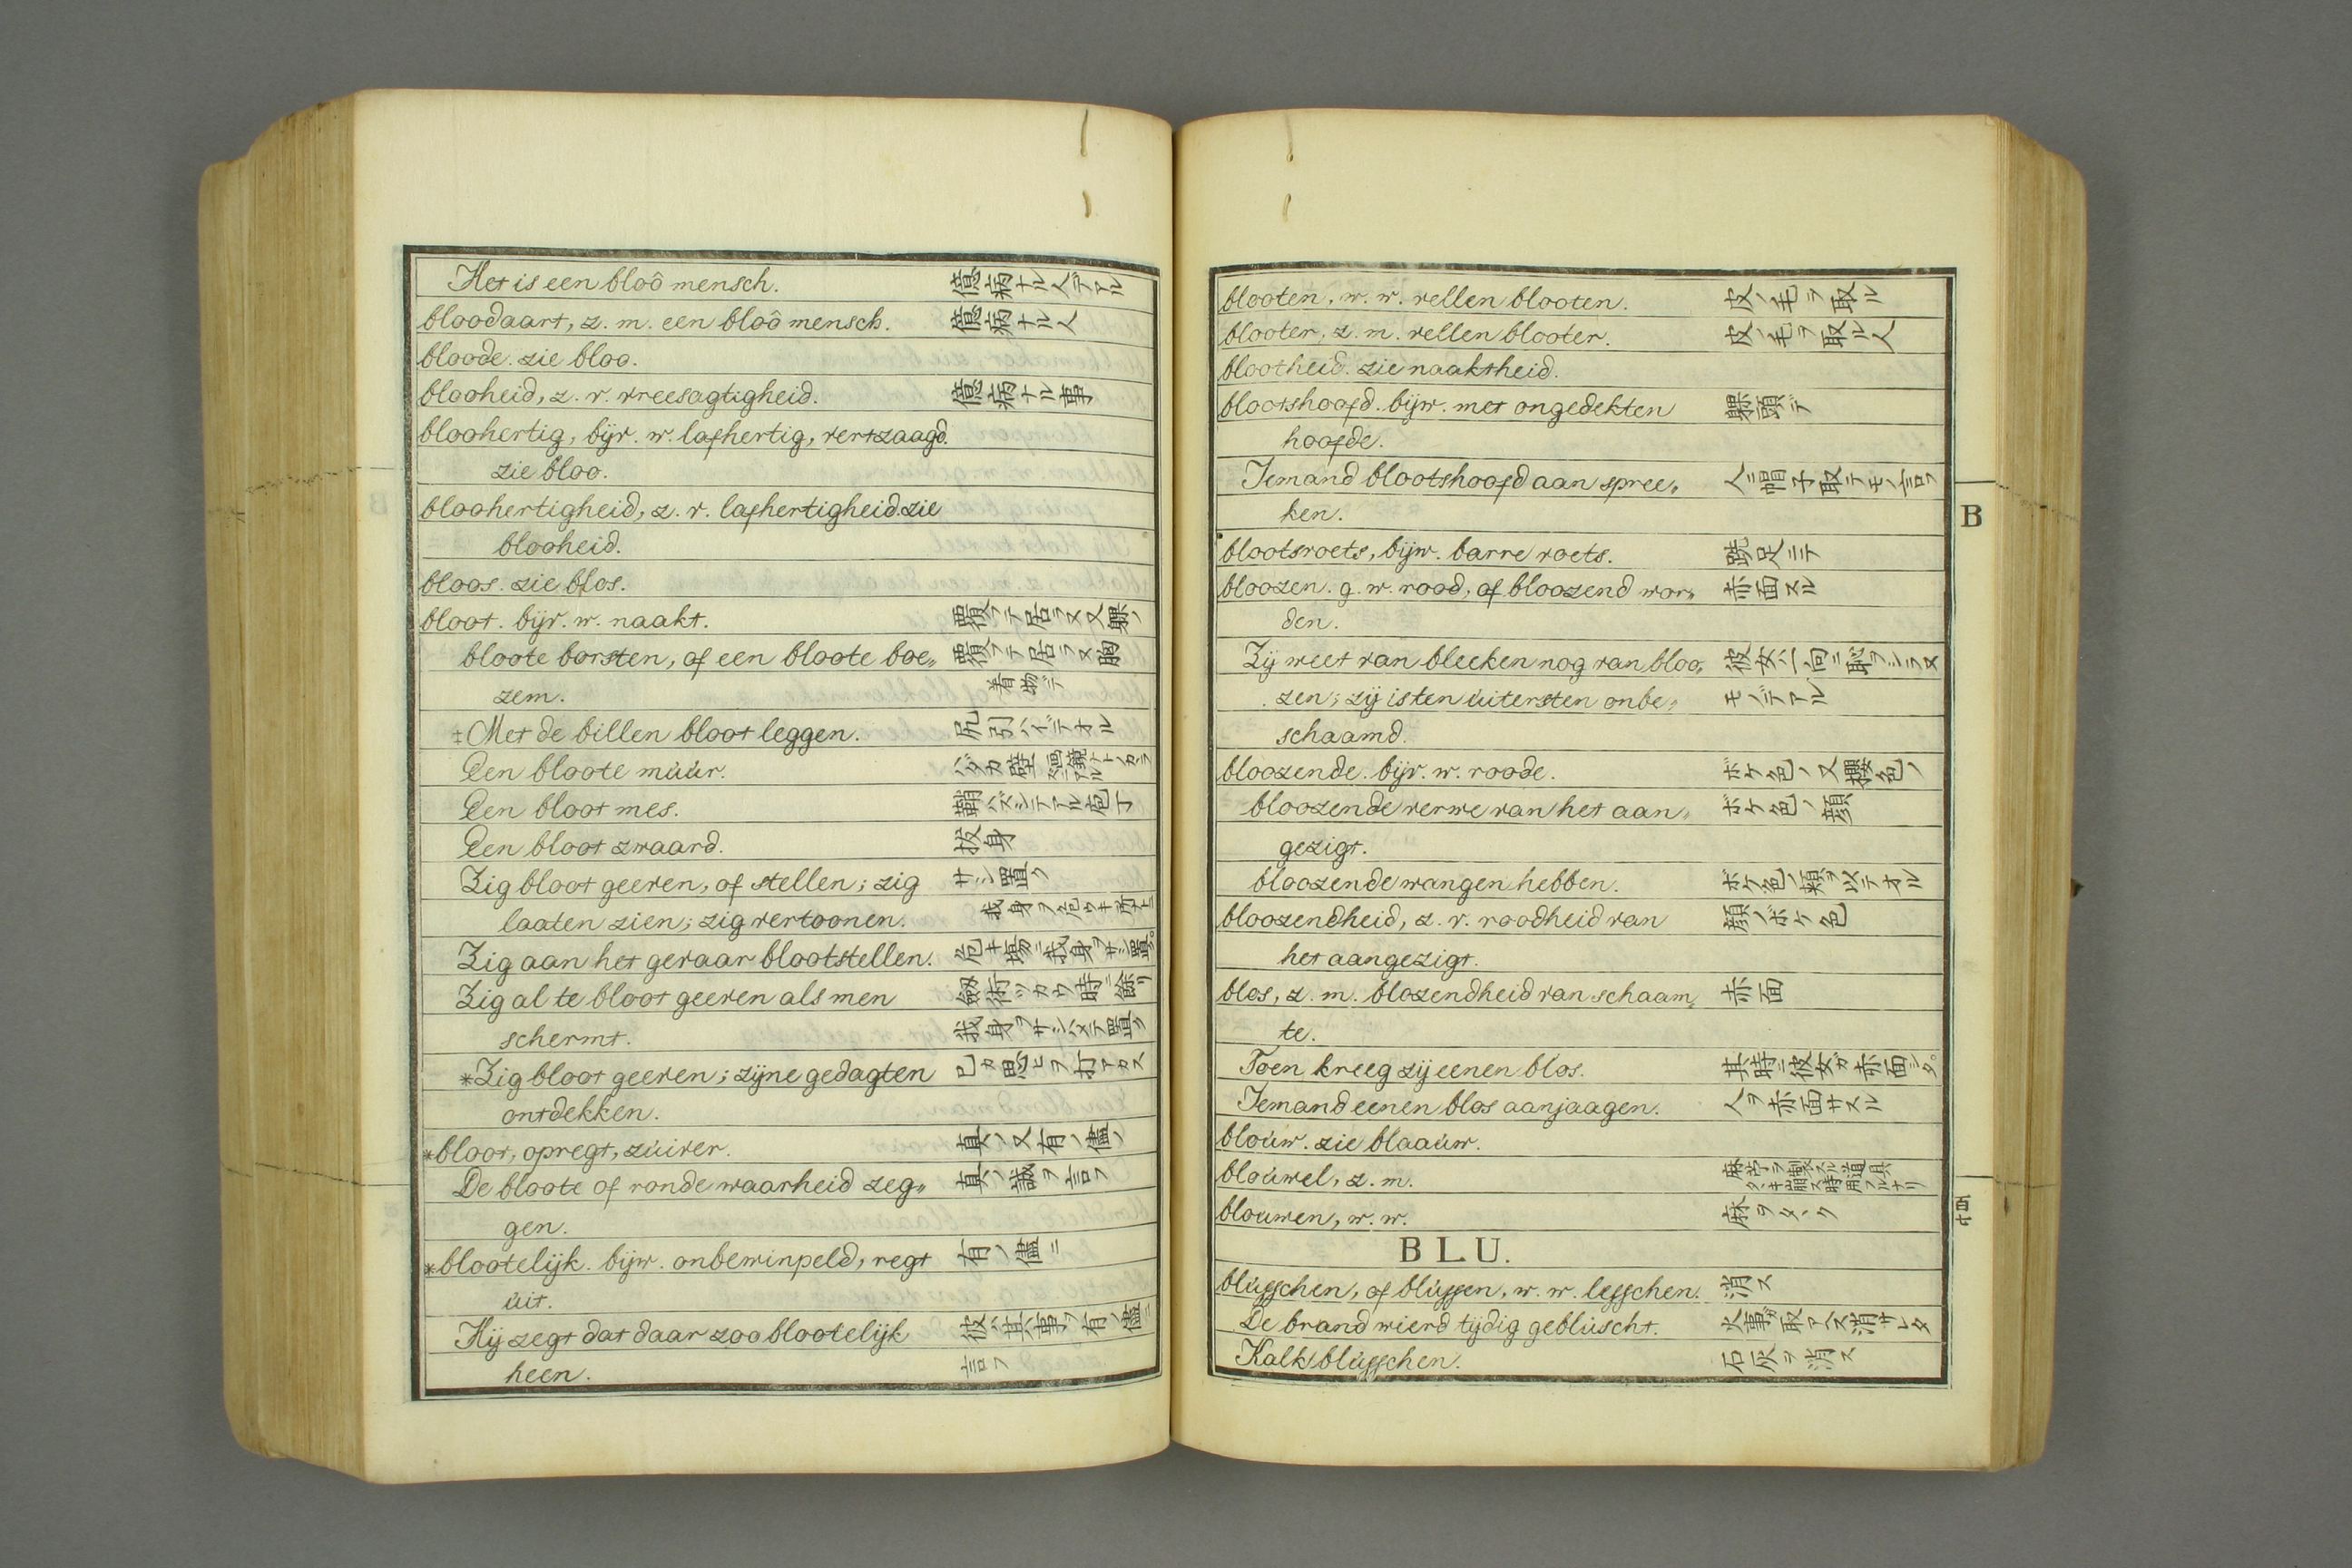 Het is een bloô mensch. 億病ナル人デアル
bloodaart, z. m. een bloô mensch. 億病ナル人
bloode. zie bloo.
blooheid, z. v. vreesagtigheid. 億病ナル事
bloohertig, bijv. w. lafhertig, vertzaagd.
zie bloo.
bloohertigheid, z. v. lafhertigheid. zie
blooheid.
bloos. zie blos.
bloot. bijv. w. naakt. 覆フテ居ラヌ又躶ノ
bloote borsten, of een bloote boe„ 覆フテ居ラヌ胸
zem. 着物デ
‡Met de billen bloot leggen. 尻引ハイデオル
Een bloote múúr. ハダカ壁
Een bloot mes. 鞘ハズシテアル庖丁
Een bloot zwaard. 抜身
Zig bloot geeven, of stellen; zig サシ置ク
laaten zien; zig vertoonen. 我身ヲ危ウキ
Zig aan het gevaar blootstellen. 危キ場ニ我身ヲサシ置
Zig al te bloot geeven als men 劔術ツカウ時ニ餘リ
schermt. 我身ヲサシハメテ置ク
*Zig bloot geeven; zijne gedagten 己カ思ヒヲ打アカス
ontdekken.
*bloot, opregt, zúiver. 真ノ又有ノ儘ノ
De bloote of ronde waarheid zeg„ 真ノ誠ヲ言フ
gen.
*blootelijk. bijw. onbewinpeld, regt 有ノ儘ニ
úit.
Hij zegt dat daar zoo blootelijk 彼ハ其事ヲ有ノ儘ニ
heen. 言フ
blooten, w. w. vellen blooten. 皮ノ毛ヲ取ル
blooter, z. m. vellen blooter. 皮ノ毛ヲ取ル人
blootheid. zie naaktheid.
blootshoofd. bijw. met ongedekten 躶頭デ
hoofde.
Iemand blootshoofd aan spree„ 人ニ帽子取テモノ言フ
ken.
blootsvoets, bijw. barre voets. 跣足ニテ
bloozen. g. w. rood, of bloozend wor„ 赤面スル
den.
Zij weet van bleeken nog van bloo„ 彼女ハ一向ニ恥ヲシラヌ
zen; zij is ten úitersten onbe„ モノデアル
schaamd.
bloozende. bijv. w. roode. ボケ色ノ又櫻色ノ
bloozende verwe van het aan„ ボケ色ノ顔
gezigt.
bloozende wangen hebben. ボケ色ノ頬ヲ以テオル
bloozendheid, z. v. roodheid van 顔ノボケ色
het aangezigt.
blos, z. m. blozendheid van schaam„ 赤面
te.
Toen kreeg zij eenen blos. 其時ニ彼女ガ赤面シタ。
Iemand eenen blos aanjaagen. 人ヲ赤面サスル
bloúw. zie blaaúw.
bloúwel, z. m. 麻苧ヲ製スル道具
タヽキ崩ス時用フルナリ
bloúwen, w. w. 麻ヲタヽク
B L U.
blússchen, of blússen, w. w. lesschen. 消ス
De brand wierd tijdig geblúscht. 火事ガ取アヘズ消サレタ
Kalk blússchen. 石灰ヲ消ス
B
十四